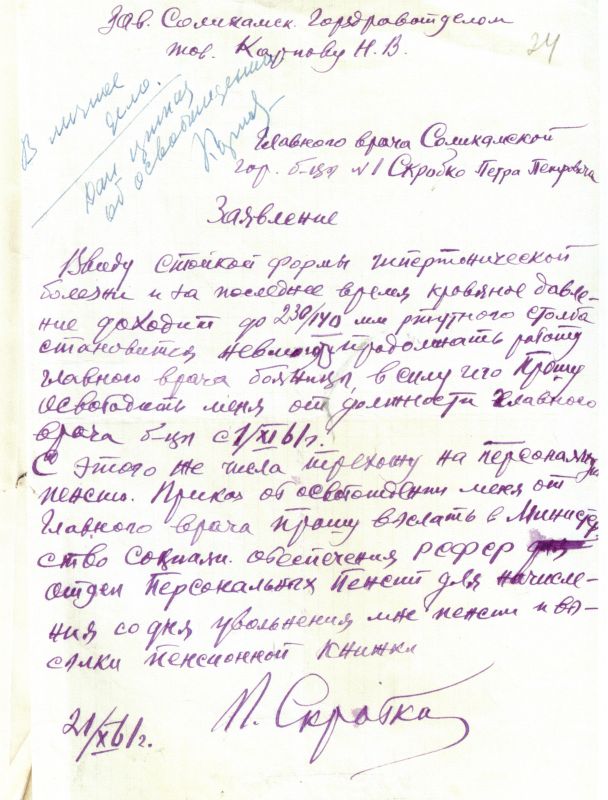 Зав. Соликамск. Горздравотделом
тов. Карпову Н. В.
24
В личное
дело.
Дан приказ
об освобождении
Главного врача Соликамской
гор. б-цы №1 Скробко Петра Петровича
Заявление
Ввиду стойкой формы гипертонической
болезни и за последнее время кровяное давле-
ние доходит до 230/140 мм ртутного столба
становится невмоготу продолжать работу
главного врача больницы, в силу чего Прошу
освободить меня от должности главного
врача б-цы с 1/XI 61г.
С этого же числа перехожу на персональную
пенсию. Приказ об освобождении меня от
Главного врача прошу выслать в Министер
ство социали. обеспечения РСФСР
отдел Персональных Пенсий для начисле-
ния со дня увольнения мне пенсии и вы-
сылки пенсионной книжки
П. Скробко
21/XI 61г.